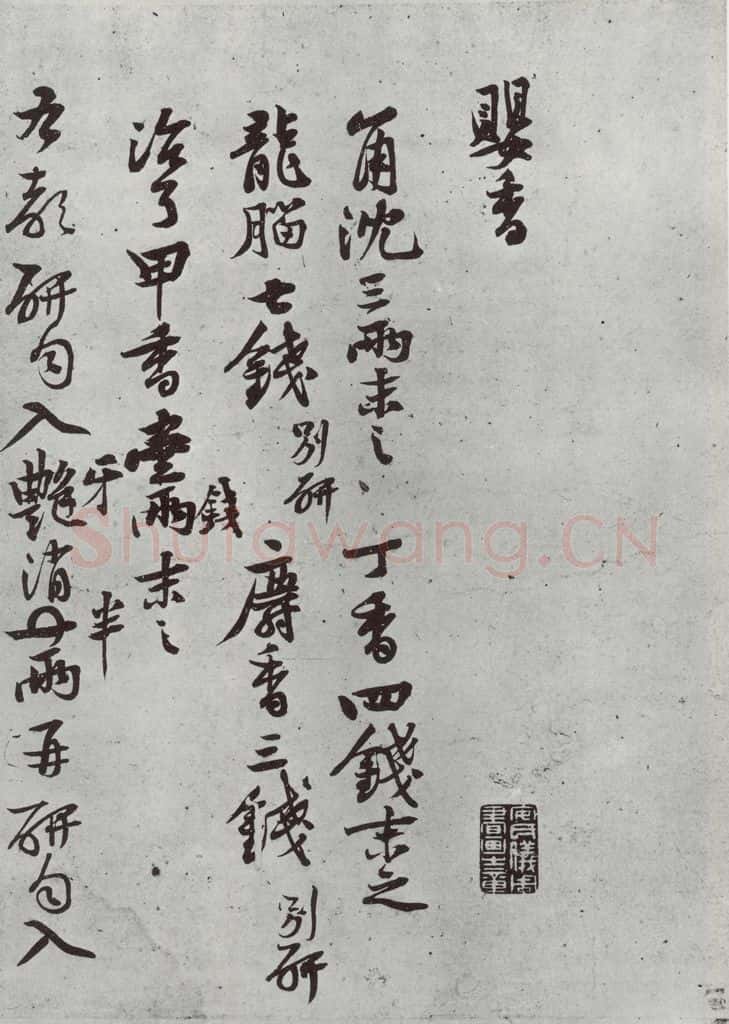 嬰香
角沈三兩末之丁香四錢末之
龍腦七錢別研麝香三錢別研
治了甲香壹兩末之
錢
右都研勻入艷消兩再研勻入
牙
半
安氏儀周書畫之章
Shufawang.CN